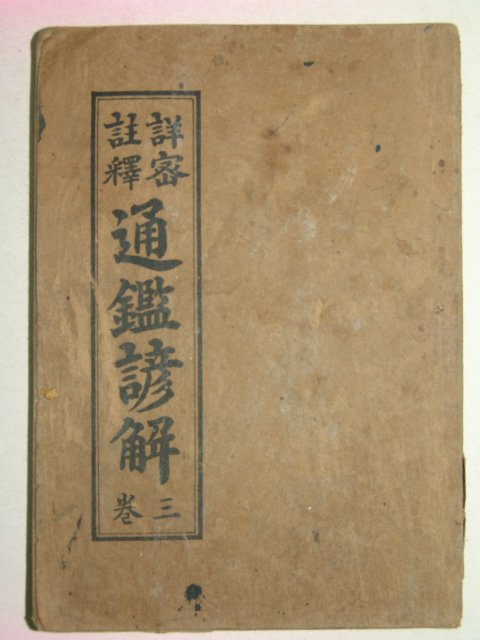 詳密
註釋
通鑑諺解
卷三